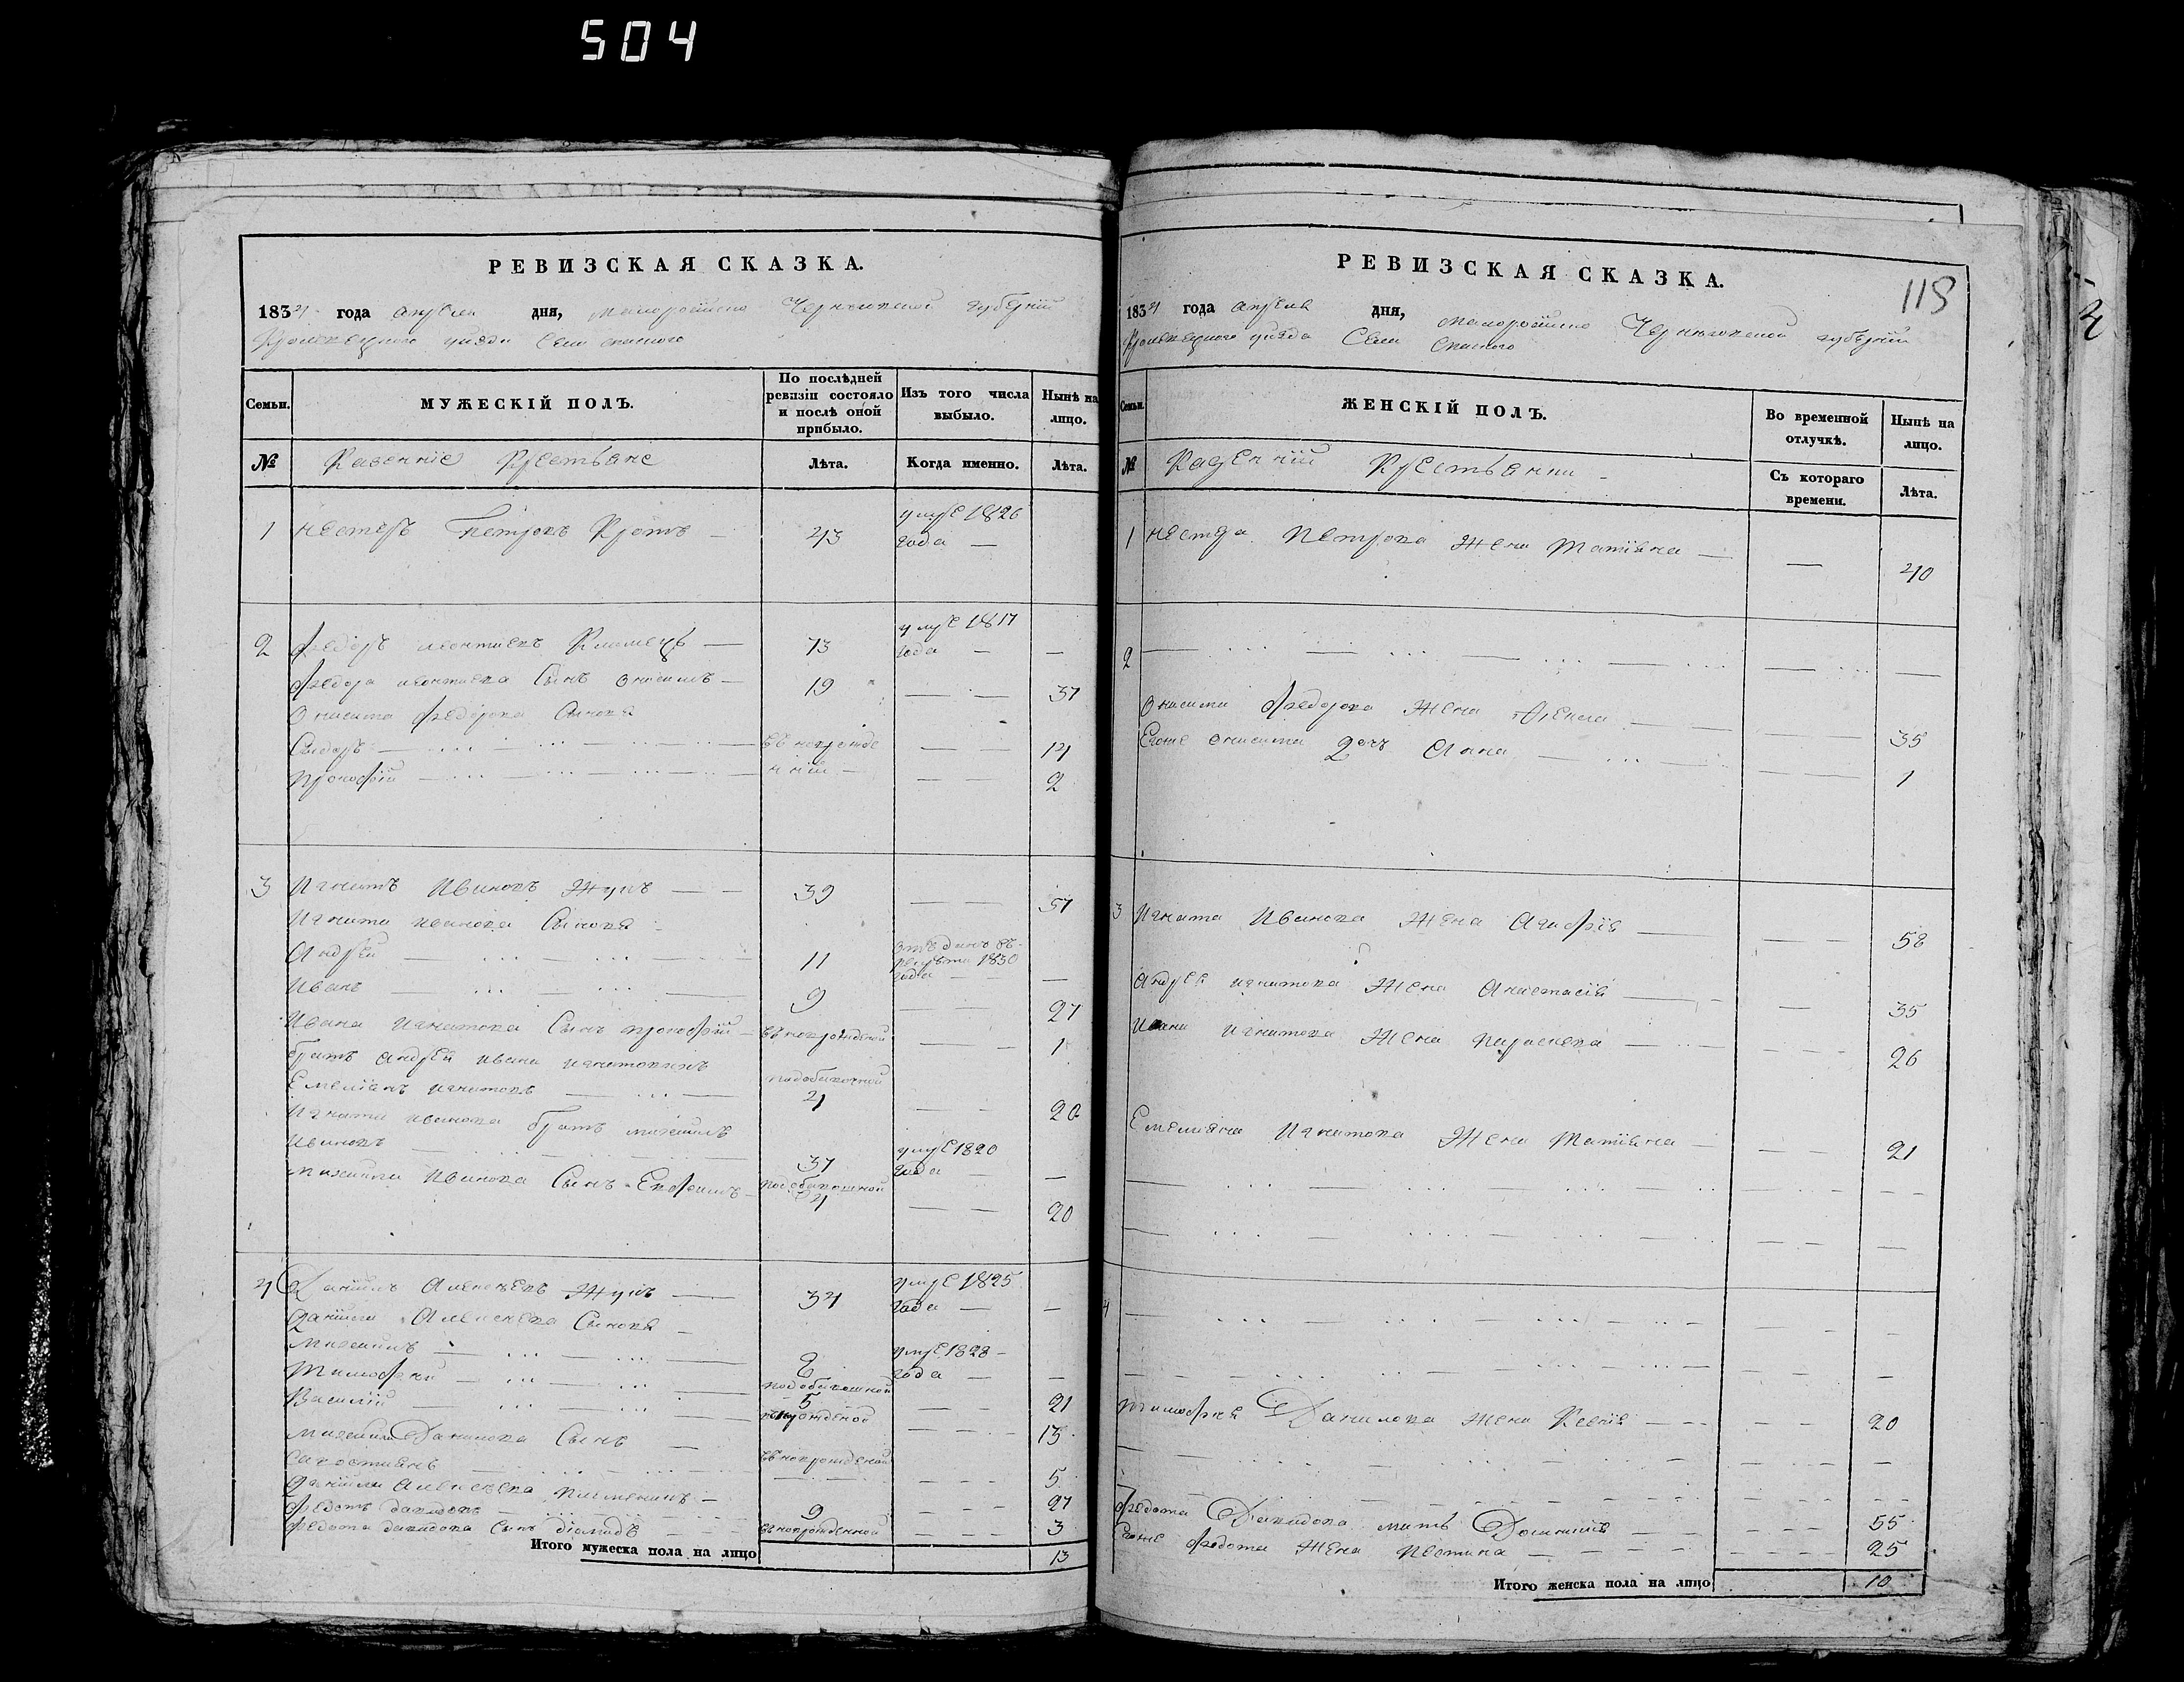 504
РЕВИЗСКАЯ СКАЗКА.
1834 года апреля дня, малоросiйско Черниговской губернiи
Кролевецкого уезда Села Спаского
Семьи.
МУЖЕСКІЙ ПОЛЪ.
По послѣдней ревизіи состояло и послѣ оной прибыло.
Изъ того числа выбыло.
Нынѣ на лицо.
№
Казеннiе Крестьяне
Лѣта.
Когда именно.
Лѣта.
1 Нестеръ Петровъ Кротъ — 43 умре 1826 года —
2 Федоръ леонтиевъ — 73 умре 1817 года — —
Федора леонтиева Сынъ Онисимъ — 19 — — 37
Онисима Федорова Сыновя
Сидоръ — въновороженнiй — — 14
Прокофiй — — — 2
3 Игнатъ Ивановъ Жукъ — — 39 — — 57
Игната иванова Сыновя
Андрей — 11 отъданъ въ рекруты 1830 года — — —
Иванъ — 9 — — 27
Ивана Игнатова Сынъ прокофiй — въноворожденой — — 1
братъ андрея ивана игнатовихъ
Емелiанъ игнатовъ — 4 — — 20
Игната иванова братъ михаилъ
Ивановъ — 37 умре 1820 года — —
михаила Иванова Сынъ — 4 — — 20
4 Данiилъ Алексеевъ Жукъ — 34 умре 1825 года — —
Данiила Алексеева Сыновя —
михаилъ — 8 умре 1828 года — —
Тимофей — 5 — — 21
Василiй — — — 13
михаила Данилова Сынъ —
Савостиянъ — въноворожденой — — 5
Данiила Алексеева племеникъ —
Федотъ давидовъ — 9 — — 27
Федота давидова сынъ дiомидъ — въноворожденной — — 3
Итого мужеска пола на лицо 13
РЕВИЗСКАЯ СКАЗКА.
118
1834 года апреля дня, малоросiйско Черниговской губернiи
Кролевецкого уезда Села Спаского
Семьи.
ЖЕНСКІЙ ПОЛЪ.
Во временной отлучкѣ.
Нынѣ на лицо.
№
Казеннiи Крестьянки —
Съ котораго времени.
Лѣта.
1 Нестера Петрова Жена Татiяна — — 40
2 — — —
Онисима Федорова Жена Фекла — — 35
Егоже Онисима дочъ Анна — — — 1
3 Игната Иванова Жена Агафiя — — — 58
Андрея игнатова Жена Анастасiя — — 35
Ивана Игнатова Жена параскева — — — 26
Емелияна Игнатова Жена Татiяна — — — 21
4 — — —
Тимофея Данилова жена Ксенiя — — — 20
Федота Давидова мать — — — 55
Егоже Федота Жена — — — 25
Итого женска пола на лицо 10